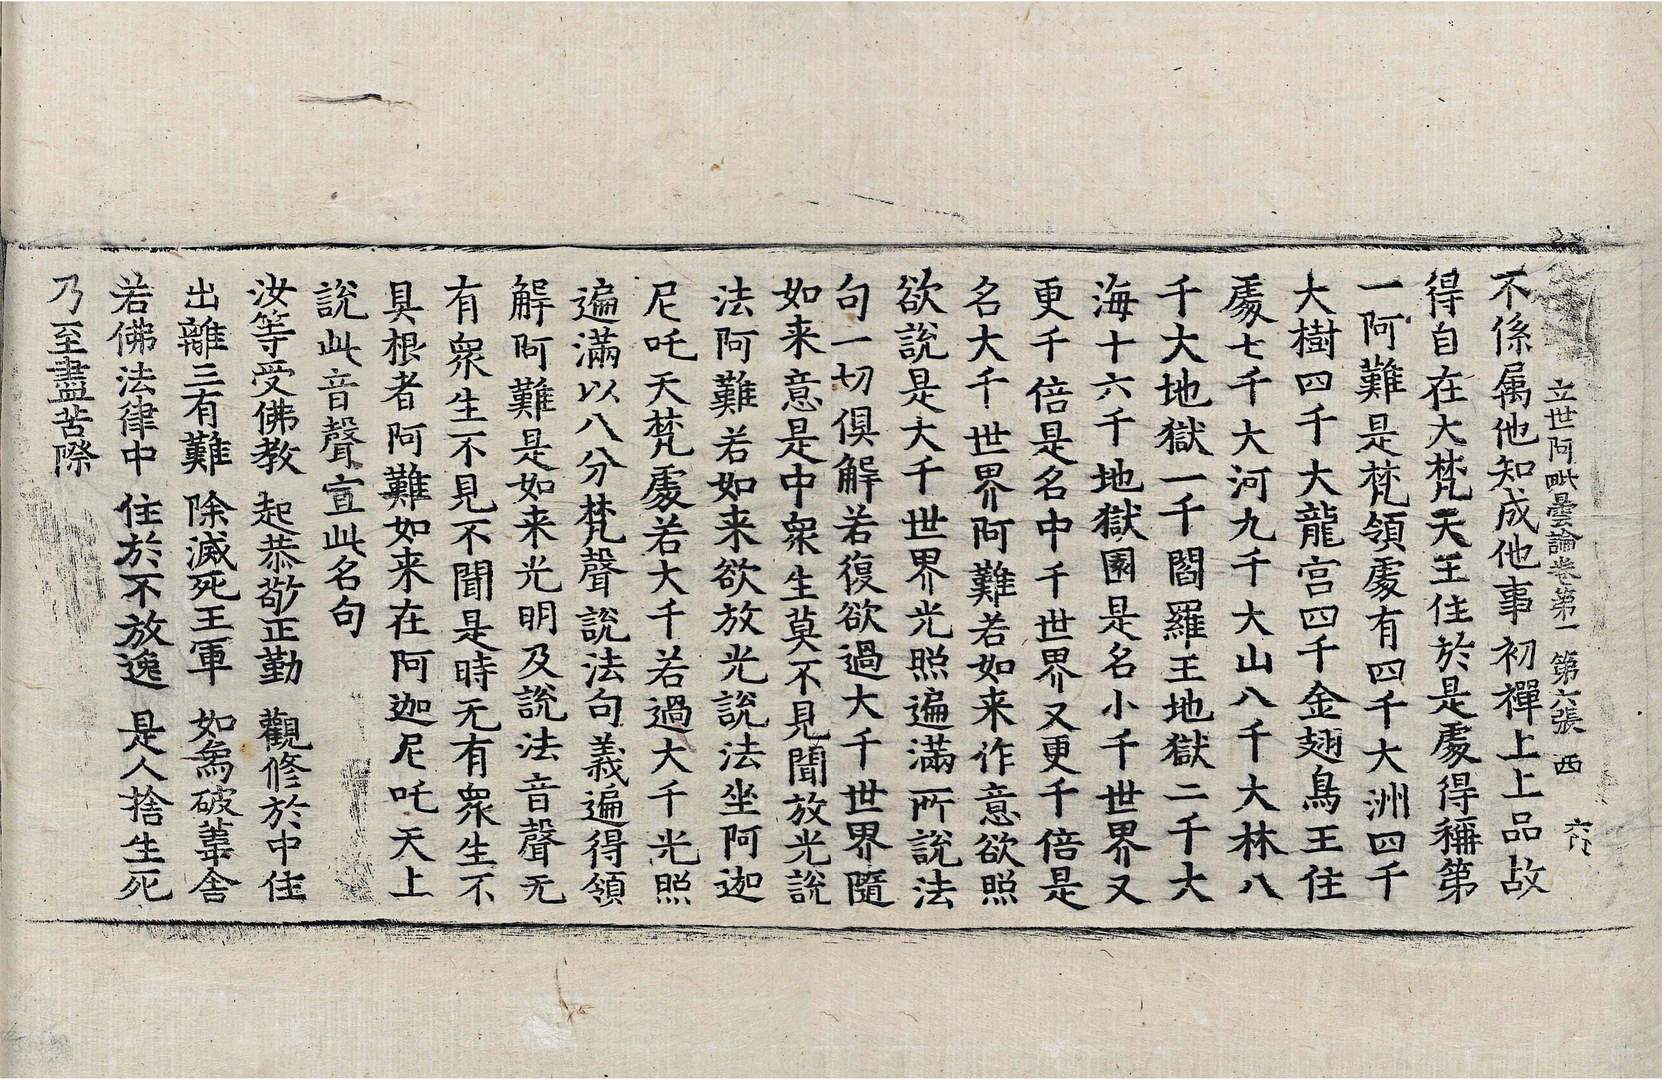 立世阿毗曇論卷第一 第六張 西
不係属他知成他事初禪上上品故
得自在大梵天王住於是處得稱第
一阿難是梵領處有四千大洲四千
大樹四千大龍宮四千金翅鳥王住
處七千大河九千大山八千大林八
千大地獄一千閻羅王地獄二千大
海十六千地獄園是名小千世界又
更千倍是名中千世界又更千倍是
名大千世界阿難若如来作意欲照
欲說是大千世界光照遍滿所說法
句一切俱解若復欲過大千世界隨
如来意是中衆生莫不見聞放光說
法阿難若如来欲放光說法坐阿迦
尼吒天梵處若大千若過大千光照
遍滿以八分梵聲說法句義遍得領
解阿難是如来光明及說法音聲无
有衆生不見不聞是時无有衆生不
具根者阿難如来在阿迦尼吒天上
說此音聲宣此名句
汝等受佛教 起恭敬正勤 觀修於中住
出離三有難 除滅死王軍 如烏破葦舍
若佛法律中 住於不放逸 是人捨生死
乃至盡苦際